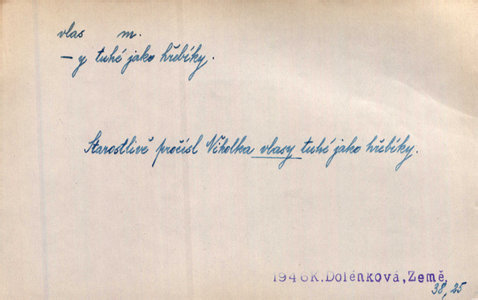 vlas m.
– y tuhé jako hřebíky.
Starostlivě pročísl Viholka vlasy tuhé jako hřebíky.
1946K.Dolénková,Země
38, 25